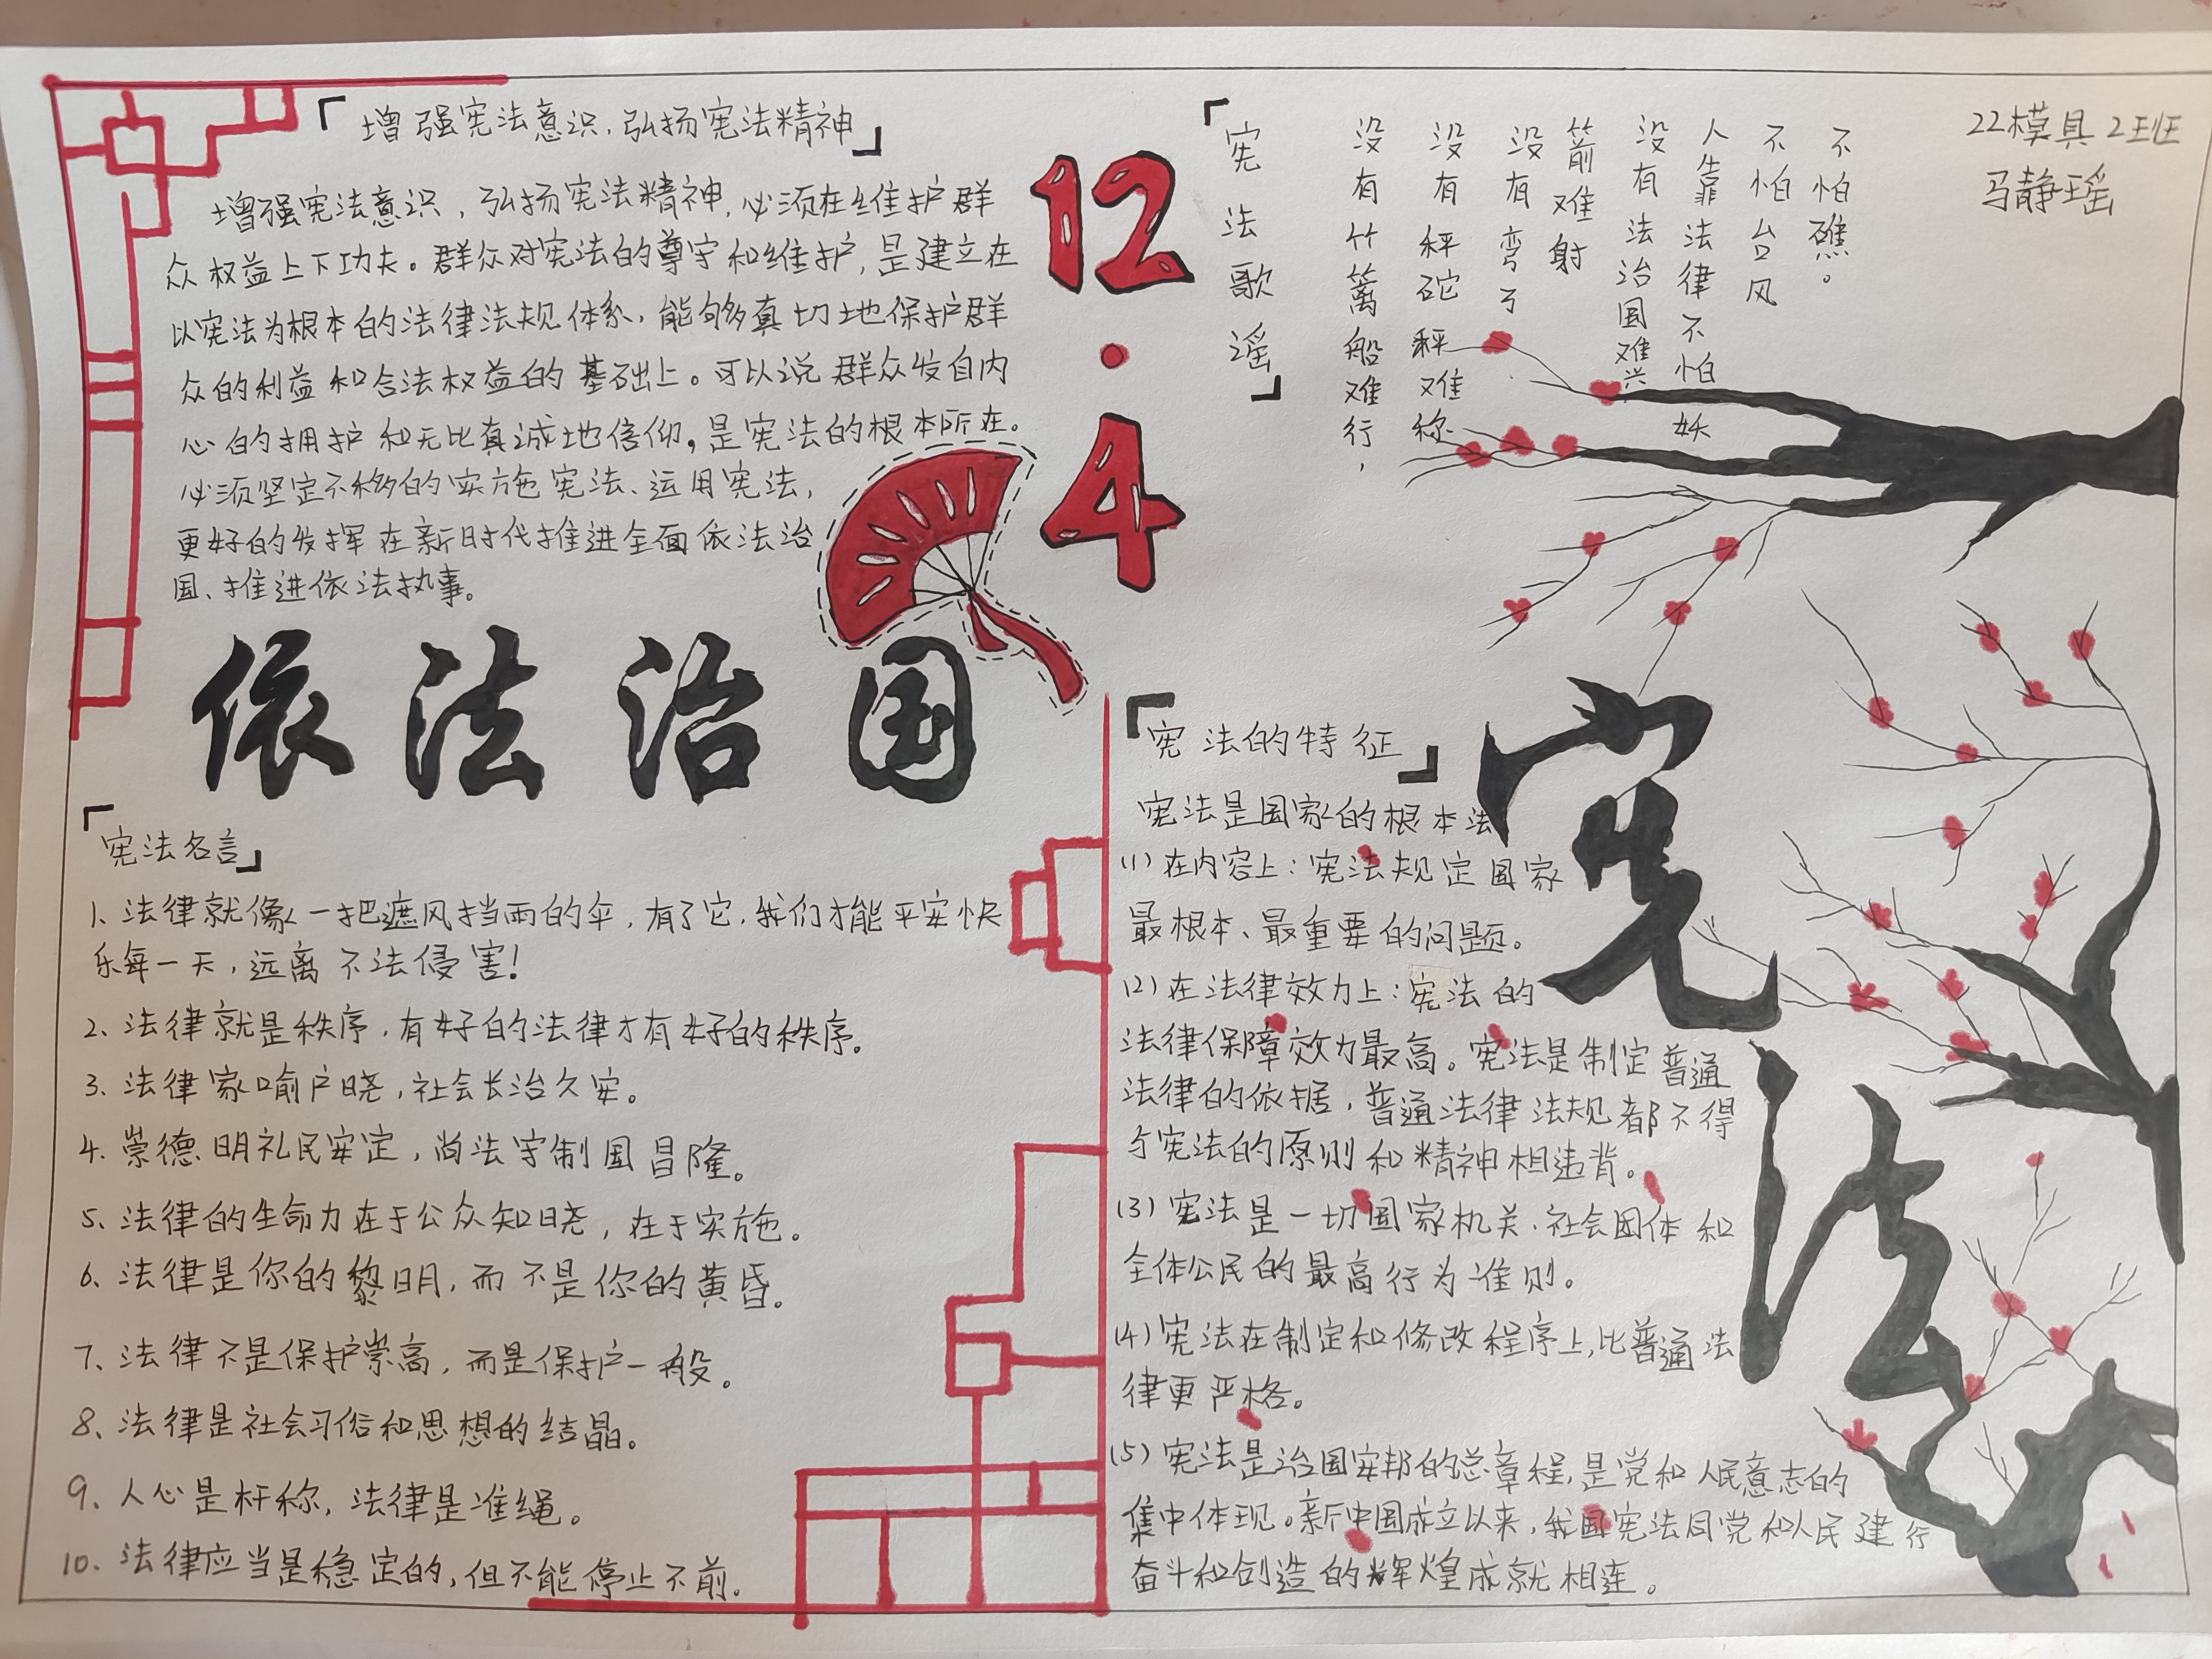 「增强宪法意识，弘扬宪法精神」
增强宪法意识，弘扬宪法精神，必须在维护群
众权益上下功夫。群众对宪法的尊守和维护，是建立在
以宪法为根本的法律法规体系，能够真切地保护群
众的利益和合法权益的基础上。可以说群众发自内
心的拥护和无比真诚地信仰，是宪法的根本所在。
必须坚定不移的实施宪法、运用宪法，
更好的发挥在新时代推进全面依法治
国、推进依法执事。
12.4
「宪法歌谣」
没有竹篱船难行，
没有秤砣秤难称
没有弯弓
箭难射
没有法治国难兴
人靠法律不怕妖
不怕台风
不怕礁。
22模具2班
马静瑶
依法治国
「宪法名言」
1、法律就像一把遮风挡雨的伞，有了它，我们才能平安快
乐每一天，远离不法侵害！
2、法律就是秩序，有好的法律才有好的秩序。
3、法律家喻户晓，社会长治久安。
4、崇德明礼民安定，尚法守制国昌隆。
5、法律的生命力在于公众知晓，在于实施。
6、法律是你的黎明，而不是你的黄昏。
7、法律不是保护崇高，而是保护一般。
8、法律是社会习俗和思想的结晶。
9、人心是杆称，法律是准绳。
10、法律应当是稳定的，但不能停止不前。
「宪法的特征」
宪法是国家的根本法
(1)在内容上：宪法规定国家
最根本、最重要的问题。
(2)在法律效力上：宪法的
法律保障效力最高。宪法是制定普通
法律的依据，普通法律法规都不得
与宪法的原则和精神相违背。
(3)宪法是一切国家机关、社会团体和
全体公民的最高行为准则。
(4)宪法在制定和修改程序上，比普通法
律更严格。
(5)宪法是治国安邦的总章程，是党和人民意志的
集中体现。新中国成立以来，我国宪法同党和人民建行
奋斗和创造的辉煌成就相连。
宪法